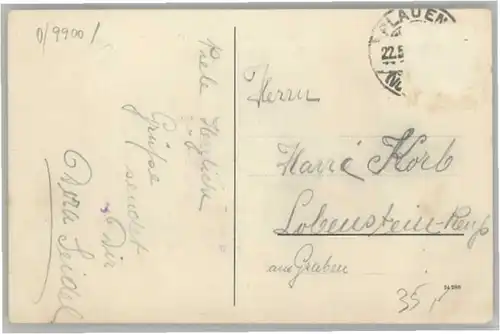 0/9900/
PLAUEN
22.5
Viele Herzliche
Grüße
sendet
Dir
Dora Seidel
Herrn
Harri Korb
Lobenstein-Reuß
am Graben
35,-